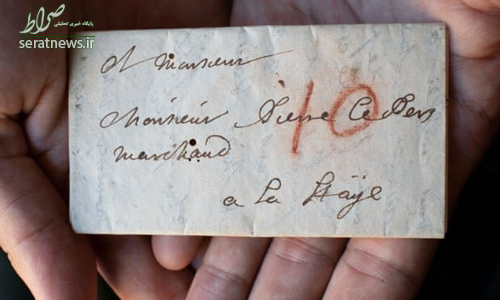 صراط
پایگاه خبری تحلیلی
seratnews.ir
A Monsieur
Monsieur Pierre Le Pers
marchand
10
a La Haÿe